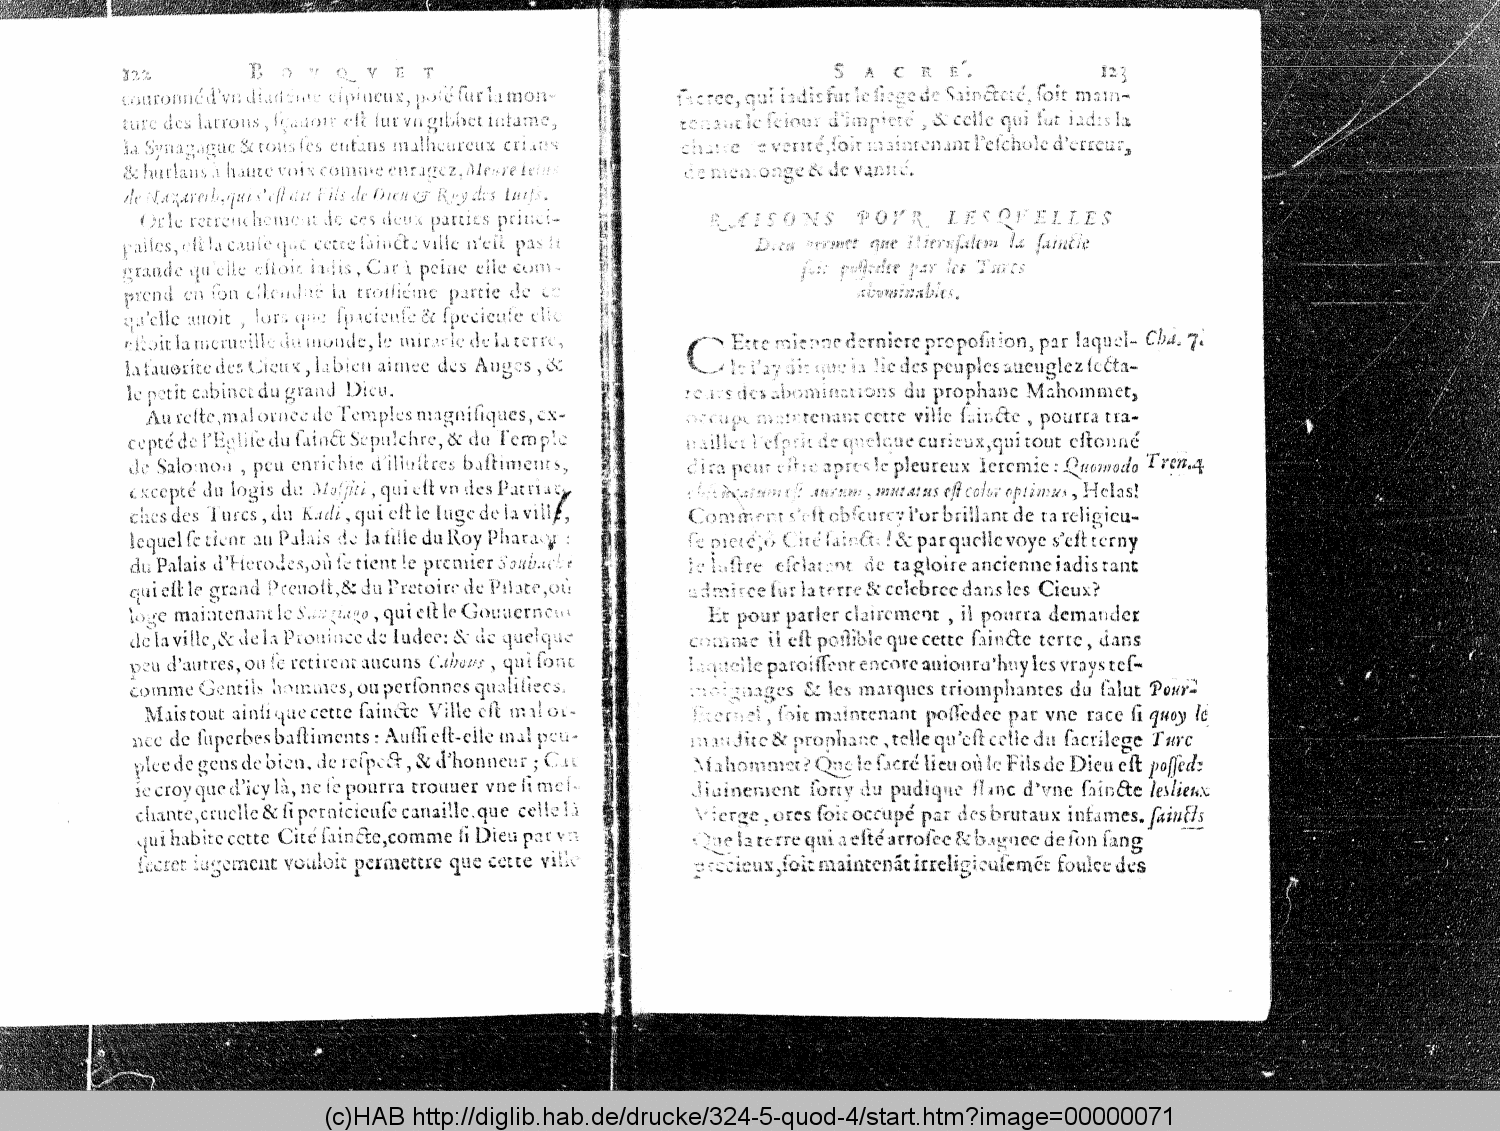 122 BOVQVET
couronné d'vn diademe espineux, posé sur la mon-
ture des larrons, sçauoir est sur vn gibbet infame,
la Synagague & tous ses enfans malheureux crians
& hurlans à haute voix comme enragez, Meure Iesus
de Nazareth, qui s'est dit Fils de Dieu & Roy des Iuifs.
Or le retrenchement de ces deux parties princi-
palles, est la cause que cette saincte ville n'est pas si
grande qu'elle estoit iadis, Car à peine elle com-
prend en son estenduë la troisiéme partie de ce
qu'elle auoit, lors que spacieuse & specieuse elle
estoit la merueille du monde, le miracle de la terre,
la fauorite des Cieux, la bien aimee des Anges, &
le petit cabinet du grand Dieu.
Au reste, mal ornee de Temples magnifiques, ex-
cepté de l'Eglise du sainct Sepulchre, & du Temple
de Salomon, peu enrichie d'illustres bastiments,
excepté du logis du Moffiti, qui est vn des Patriar-
ches des Turcs, du Kadi, qui est le Iuge de la ville,
lequel se tient au Palais de la fille du Roy Pharaon:
du Palais d'Herodes, où se tient le premier Soubachi
qui est le grand Preuost, & du Pretoire de Pilate, où
loge maintenant le Sangiago, qui est le Gouuerneur
de la ville, & de la Prouince de Iudee: & de quelque
peu d'autres, où se retirent aucuns Cahous, qui sont
comme Gentils hommes, ou personnes qualifiees.
Mais tout ainsi que cette saincte Ville est mal or-
nee de superbes bastiments: Aussi est-elle mal peu-
plee de gens de bien, de respect, & d'honneur; Car
ie croy que d'icy là, ne se pourra trouuer vne si mes-
chante, cruelle & si pernicieuse canaille, que celle là
qui habite cette Cité saincte, comme si Dieu par vn
secret iugement vouloit permettre que cette ville
SACRÉ. 123
sacree, qui iadis fut le siege de Saincteté, soit main-
tenant le seiour d'impieté, & celle qui fut iadis la
chaire de verité, soit maintenant l'eschole d'erreur,
de mensonge & de vanité.
RAISONS POVR LESQVELLES
Dieu permet que Hierusalem la saincte
soit possedee par les Turcs
abominables.
CEtte mienne derniere proposition, par laquel- Cha. 7.
le i'ay dit que la lie des peuples aueuglez secta-
teurs des abominations du prophane Mahommet,
occupe maintenant cette ville saincte, pourra tra-
uailler l'esprit de quelque curieux, qui tout estonné
dira peut estre apres le pleureux Ieremie: Quomodo Tren. 4
obscuratum est aurum, mutatus est color optimus, Helas!
Comment s'est obscurcy l'or brillant de ta religieu-
se pieté, ô Cité saincte! & par quelle voye s'est terny
le lustre esclatant de ta gloire ancienne iadis tant
admiree sur la terre & celebree dans les Cieux?
Et pour parler clairement, il pourra demander
comme il est possible que cette saincte terre, dans
laquelle paroissent encore auiourd'huy les vrays tes-
moignages & les marques triomphantes du salut Pour-
Eternel, soit maintenant possedee par vne race si quoy le
maudite & prophane, telle qu'est celle du sacrilege Turc
Mahommet? Que le sacré lieu où le Fils de Dieu est possed:
diuinement sorty du pudique flanc d'vne saincte les lieux
Vierge, ores soit occupé par des brutaux infames. saincts
Que la terre qui a esté arrosee & bagnee de son sang
precieux, soit maintenãt irreligieusemẽt foulee des
(c)HAB http://diglib.hab.de/drucke/324-5-quod-4/start.htm?image=00000071